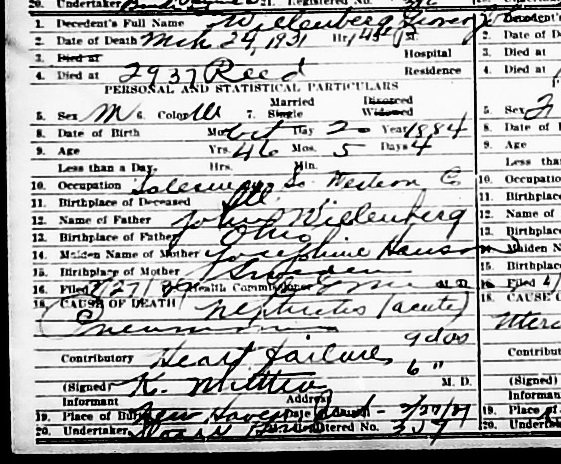 20. Undertaker 21. Registered No.
1. Decedent's Full Name Willenberg
2. Date of Death Mch 24, 1931 Hr. 1 45 P.
3. Died at Hospital
4. Died at 2937 Reed Residence
PERSONAL AND STATISTICAL PARTICULARS
5. Sex M 6. Color W 7. Married Single Divorced Widowed
8. Date of Birth Mo. Oct Day 20 Year 1884
9. Age Yrs. 46 Mos. 5 Days 4
Less than a Day. Hrs. Min.
10. Occupation Salesman So Western Co
11. Birthplace of Deceased Ill.
12. Name of Father John Willenberg
13. Birthplace of Father Ohio
14. Maiden Name of Mother Josephine Hanson
15. Birthplace of Mother Sweden
16. Filed 3/27/31 Health Commissioner M. D.
18. CAUSE OF DEATH Nephritis (acute)
Pneumonia
9 dos
Contributory Heart failure 6 "
(Signed) M. D.
Informant Address
19. Place of Burial New Haven Date of Burial - 3/27/31
20. Undertaker 21. Registered No.
2. Date of D
3. Died at
4. Died at
5. Sex F
8. Date of B
9. Age
Less than
10. Occupation
11. Birthplace
12. Name of
13. Birthplace
14. Maiden N
15. Birthplace
16. Filed
18. CAUSE O
Contribut
(Signed)
Informant
19. Place of
20. Undertak